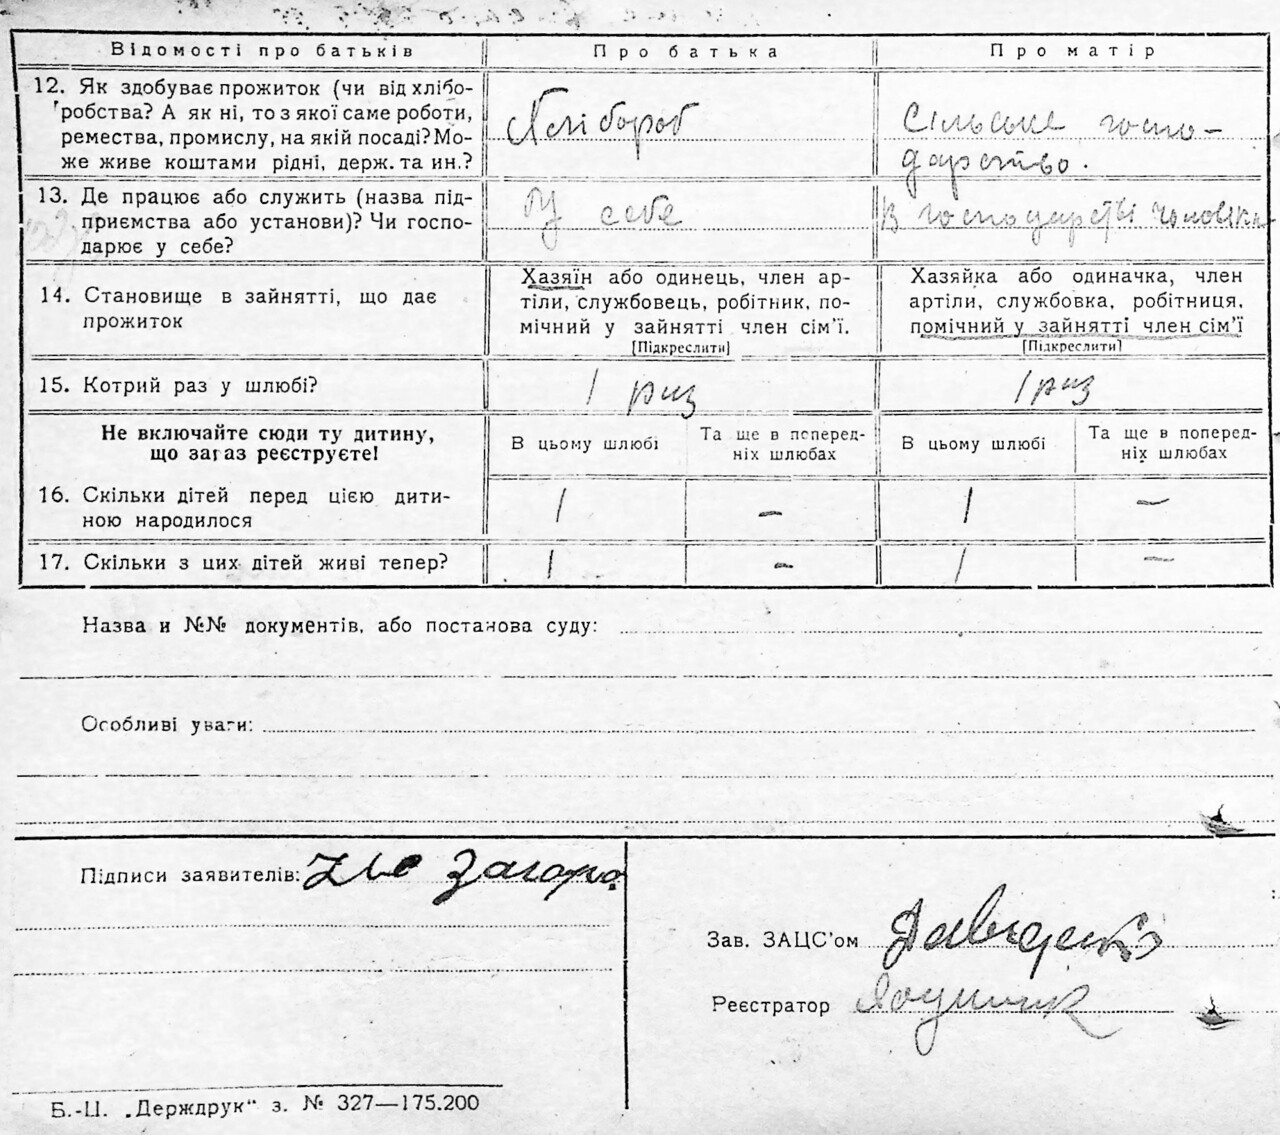 Відомості про батьків
Про батька
Про матір
12. Як здобуває прожиток (чи від хлібо-
робства? А як ні, то з якої саме роботи,
ремества, промислу, на якій посаді? Мо-
же живе коштами рідні, держ. та ин.?
Хлібороб
Сільське госпо-
дарство.
13. Де працює або служить (назва під-
приємства або установи)? Чи госпо-
дарює у себе?
У себе
В господарстві чоловіка
14. Становище в зайнятті, що дає
прожиток
Хазяїн або одинець, член ар-
тіли, службовець, робітник, по-
мічний у зайнятті член сім'ї.
[Підкреслити]
Хазяйка або одиначка, член
артіли, службовка, робітниця,
помічний у зайнятті член сім'ї
[Підкреслити]
15. Котрий раз у шлюбі?
1 раз
1 раз
Не включайте сюди ту дитину,
що зараз реєструєте!
В цьому шлюбі
Та ще в поперед-
ніх шлюбах
В цьому шлюбі
Та ще в поперед-
ніх шлюбах
16. Скільки дітей перед цією дити-
ною народилося
1
–
1
–
17. Скільки з цих дітей живі тепер?
1
–
1
–
Назва и №№ документів, або постанова суду:
Особливі уваги:
Підписи заявителів:
Зав. ЗАЦС'ом
Реєстратор
Б.-Ц. „Держдрук" з. № 327—175.200